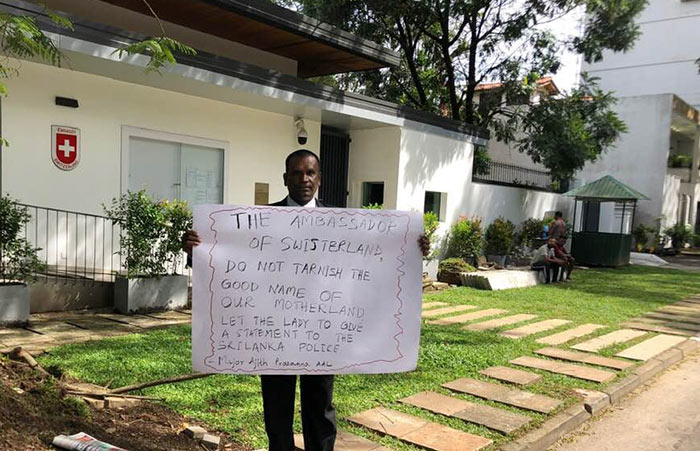 THE AMBASSADOR
OF SWISTERLAND,
DO NOT TARNISH THE
GOOD NAME OF
OUR MOTHERLAND
LET THE LADY TO GIVE
A STATEMENT TO THE
SRILANKA POLICE
Major Ajith Prasanna AAL